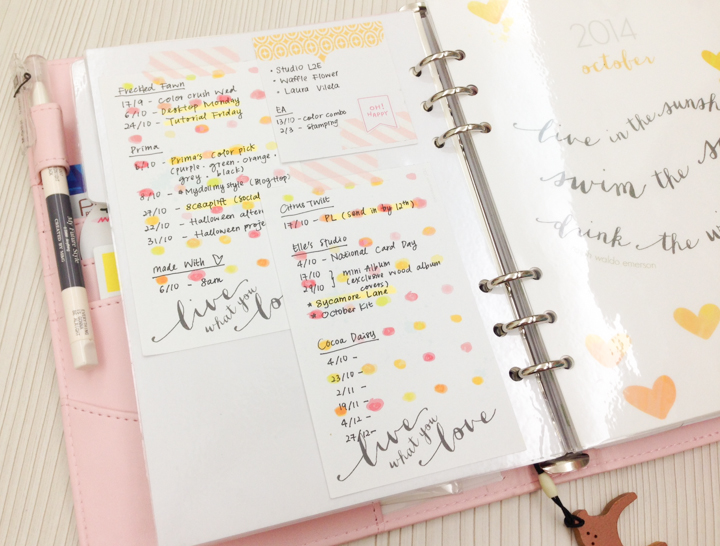 Freckled Fawn
17/9 - Color crush Wed
6/10 - Desktop Monday
24/10 - Tutorial Friday
Prima
6/10 - Prima's Color pick
(purple · green · orange ·
grey · black)
8/10 - * Mydollmystyle (Blog Hop)
22/10 - Halloween
31/10 - Halloween
made With
6/10 - 8am
live
what you
lo
• Studio L2E
• Waffle Flower
• Laura Vilela
EA
13/10 - color combo
2/3 - Stamping
OH!
HAPPY
Citrus Twist
17/10 - PL (send in by 12th)
Elle's Studio
4/10 - National Card Day
17/10
29/10 } mini Album
(exclusive wood album
covers)
* Sycamore Lane
* October Kit
Cocoa Daisy
4/10 -
23/10 -
2/11 -
19/11 -
4/12 -
27/12 -
live
what you
love
2014
october
live in the sunsh
swim the s
drink the w
waldo emerson
My Future Style